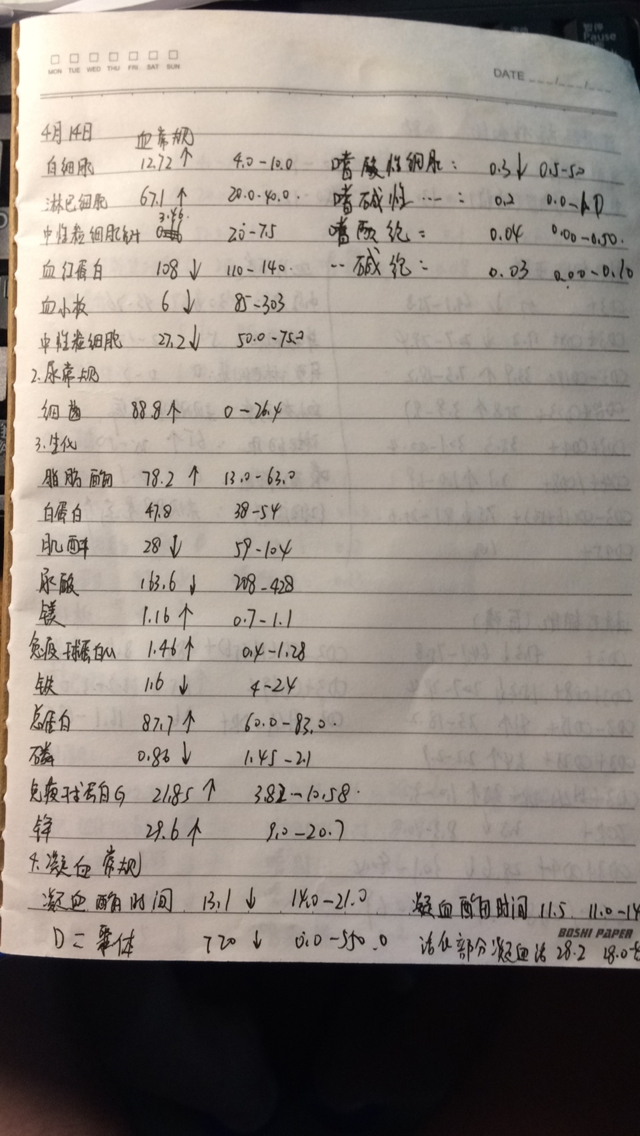 Pause
MON TUE WED THU FRI SAT SUN
DATE ___/___/___
4月14日 血常规
白细胞 12.72↑ 4.0-10.0 嗜酸性细胞: 0.3↓ 0.5-5.0
淋巴细胞 67.1↑ 20.0-40.0 嗜碱性…: 0.2 0.0-1.0
中性粒细胞 3.46 2.0-7.5 嗜酸绝: 0.04 0.00-0.50
血红蛋白 108↓ 110-140 --碱绝: 0.03 0.00-0.10
血小板 6↓ 85-303
中性粒细胞 27.2↓ 50.0-75.0
2.尿常规
细菌 88.8↑ 0-26.4
3.生化
脂肪酶 78.2↑ 13.0-63.0
白蛋白 47.8 38-54
肌酐 28↓ 59-104
尿酸 163.6↓ 208-428
镁 1.16↑ 0.7-1.1
免疫球蛋白M 1.46↑ 0.4-1.28
铁 1.6↓ 4-24
总蛋白 87.7↑ 60.0-83.0
磷 0.86↓ 1.45-2.1
免疫球蛋白G 21.85↑ 3.82-10.58
锌 29.6↑ 9.0-20.7
4.凝血常规
凝血酶时间 13.1↓ 14.0-21.0 凝血酶时间 11.5 11.0-14
BOSHI PAPER
D二聚体 720↓ 0.0-550.0 活化部分凝血活 28.2 28.0